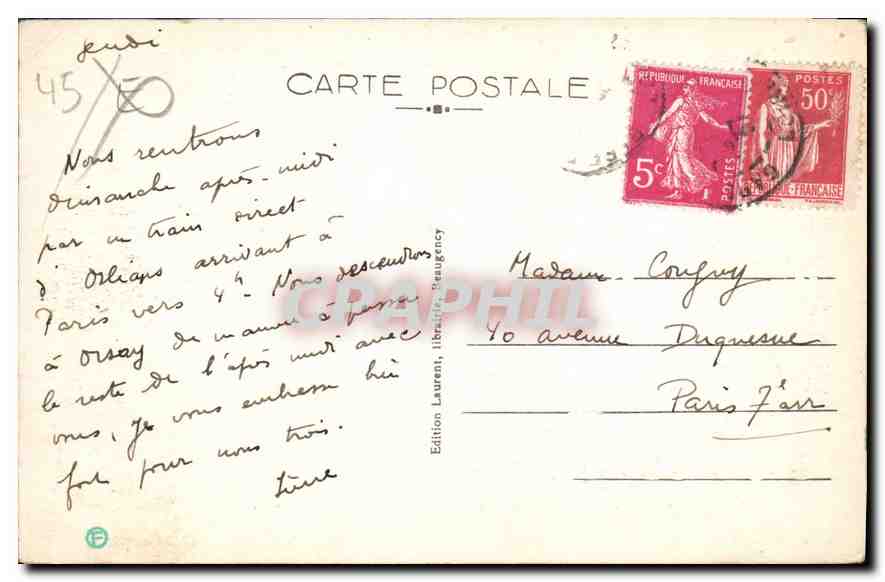 Jeudi
45
CARTE POSTALE
RÉPUBLIQUE FRANÇAISE
5c
POSTES
POSTES
50c
RÉPUBLIQUE-FRANÇAISE
Nous rentrons
dimanche après-midi
par un train direct
d'Orléans arrivant à
Paris vers 4h. Nous descendrons
à Orsay de manière à passer
le reste de l'après midi avec
vous, je vous embrasse bien
fort pour nous trois.
Edition Laurent, librairie, Beaugency
Madame Cougny
40 avenue Duquesne
Paris 7e arr
CPAPHIL
F